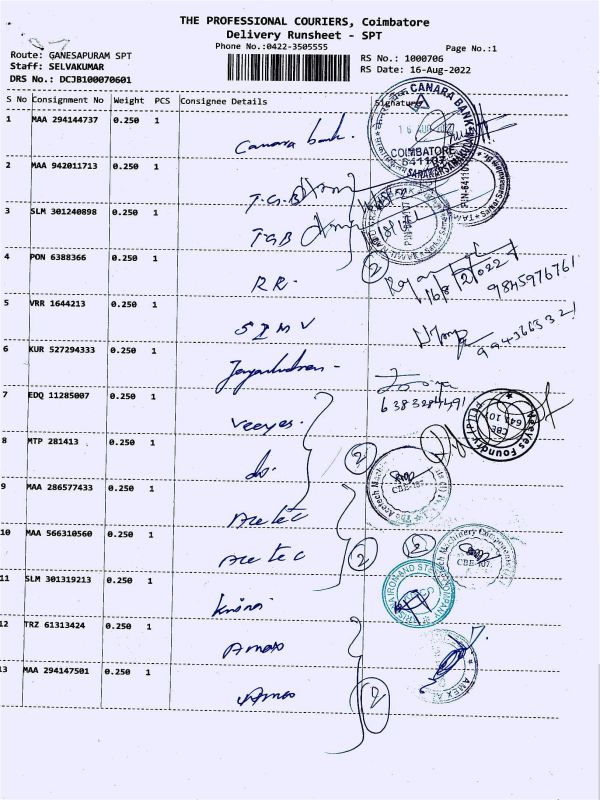 THE PROFESSIONAL COURIERS, Coimbatore
Delivery Runsheet - SPT
Phone No.:0422-3505555
Page No.:1
Route: GANESAPURAM SPT
Staff: SELVAKUMAR
DRS No.: DCJB100070601
RS No.: 1000706
RS Date: 16-Aug-2022
S No Consignment No Weight PCS Consignee Details Signature
1 MAA 294144737 0.250 1 Canara bank. CANARA BANK COIMBATORE 641107
2 MAA 942011713 0.250 1 T.G.B
3 SLM 301240898 0.250 1 TGB
4 PON 6388366 0.250 1 RR. 16/8/2022 9845976761
5 VRR 1644213 0.250 1 SIMV
6 KUR 527294333 0.250 1 6383284491
7 EDQ 11285007 0.250 1 Veeyes. Veeyes Foundry (P) Ltd CBE 641 107
8 MTP 281413 0.250 1 do.
9 MAA 286577433 0.250 1 Acetec CBE-107.
10 MAA 566310560 0.250 1 Acetec CBE-107.
11 SLM 301319213 0.250 1
12 TRZ 61313424 0.250 1
13 MAA 294147501 0.250 1